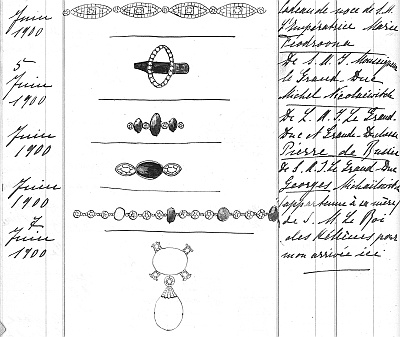 Juin
1900
5
Juin
1900
Juin
1900
Juin
1900
7
Juin
1900
cadeau de noce de S. M.
l'Impératrice Marie
Feodrovna
De S. A. I. Monseigneur
le Grand Duc
Michel Nicolaievitch
De L. A. I. Le Grand
Duc et Grande Duchesse
Pierre de Russie
de S. A. I. Le Grand Duc
Georges Michailovitch
appartenu à sa mère
de S. M. Le Roi
des Hellènes pour
mon arrivée ici